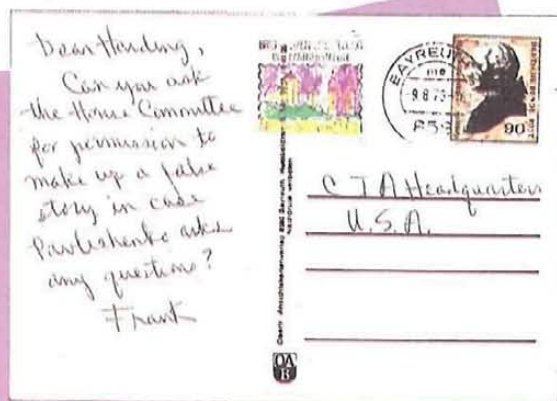 Dear Harding,
Can you ask
the House Committee
for permission to
make up a false
story in case
Pavlishenko asks
any questions?
Frank
BAYREUTH
90
C I A Headquarters
U. S. A.
OA
B